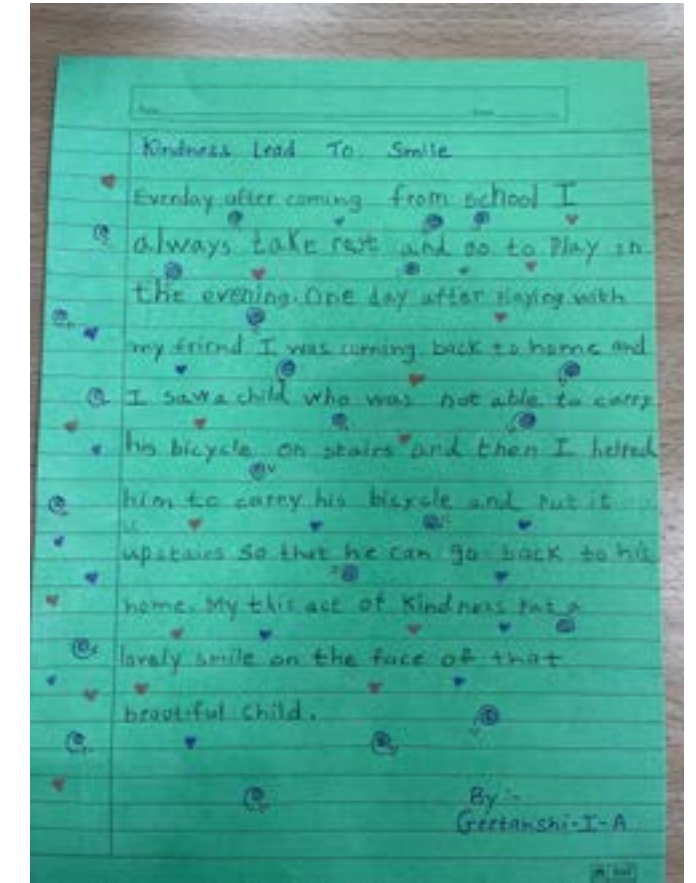 Kindness Lead To Smile
Everday after coming from school I
always take rest and go to Play in
the evening. One day after Playing with
my friend I was coming back to home and
I saw a child who was not able to carry
his bicycle on stairs and then I helped
him to carry his bicycle and Put it
upstairs so that he can go back to his
home. My this act of Kindness Put a
lovely smile on the face of that
beautiful child.
By :-
Geetanshi-I-A